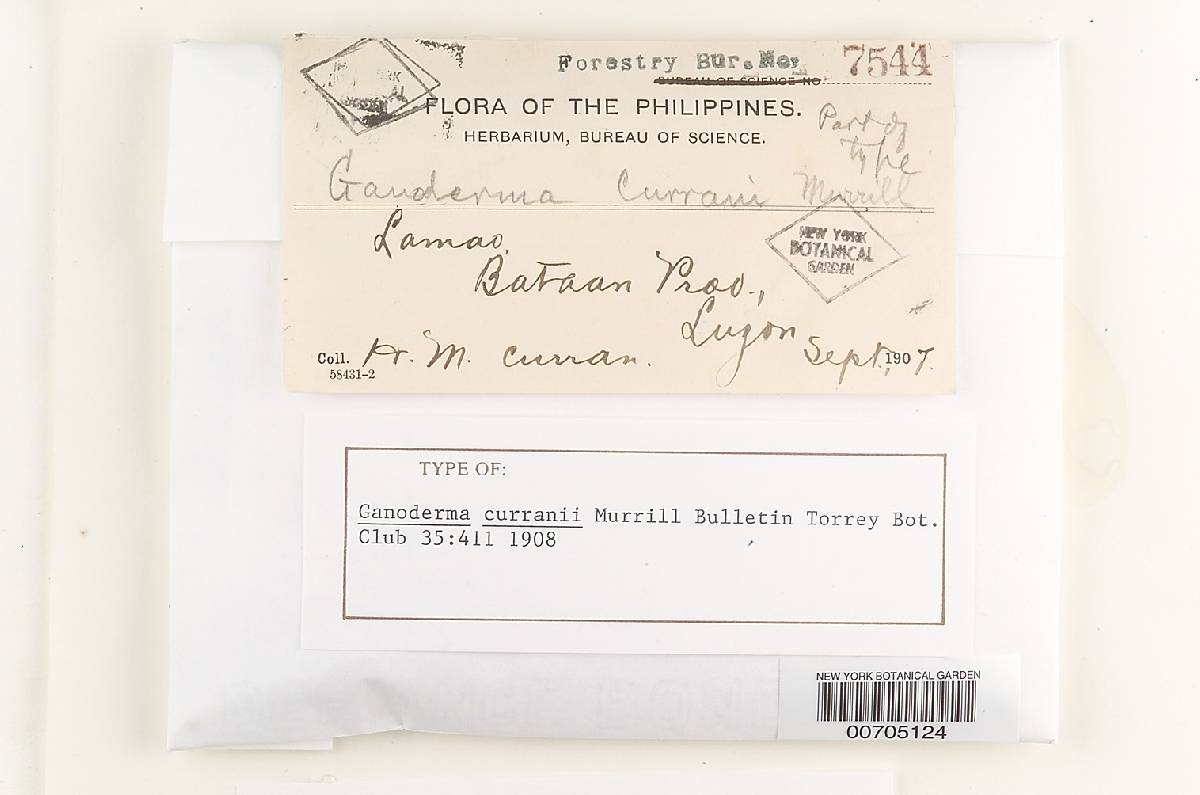 Forestry Bur. No. 7544
BUREAU OF SCIENCE NO.
FLORA OF THE PHILIPPINES.
HERBARIUM, BUREAU OF SCIENCE.
Part of
type
Ganoderma Currani Murrill
Lamao,
NEW YORK
BOTANICAL
GARDEN
Bataan Prov.,
Luzon
Coll. H. M. Curran. Sept., 1907.
58431-2
TYPE OF:
Ganoderma curranii Murrill Bulletin Torrey Bot.
Club 35:411 1908
NEW YORK BOTANICAL GARDEN
00705124